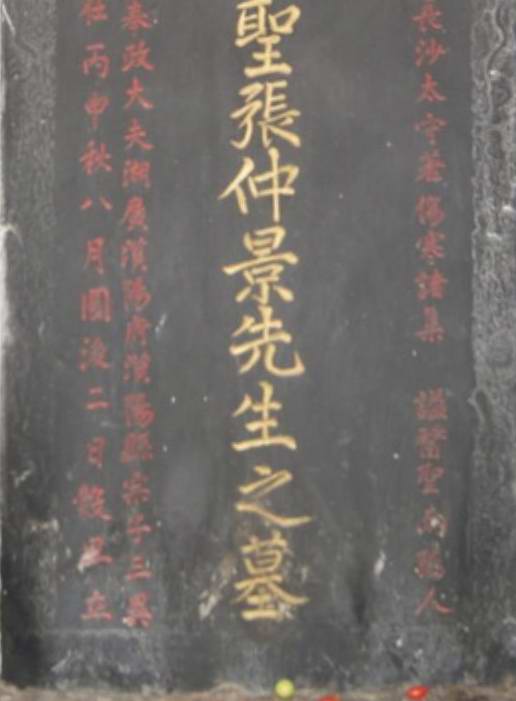 長沙太守著傷寒諸集 諡醫聖南陽人
聖張仲景先生之墓
奉政大夫湖廣漢陽府漢陽縣宗子三異
丙申秋八月圓後二日穀旦立